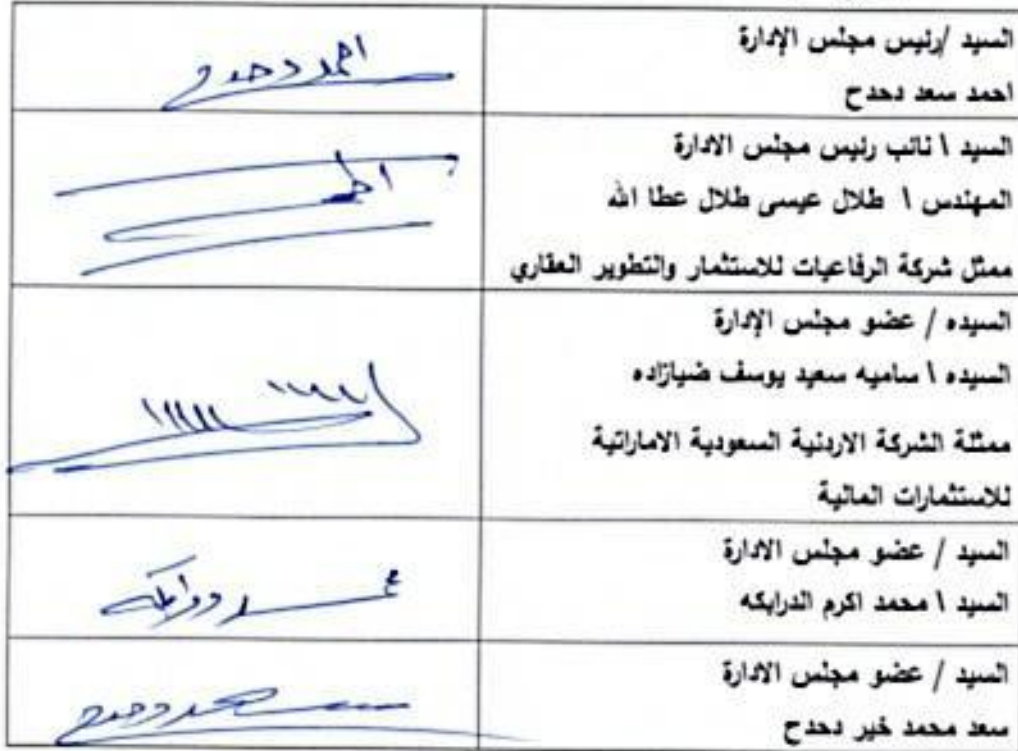 السيد /رئيس مجلس الإدارة
احمد سعد دحدح
احمد دحدح
السيد \ نائب رئيس مجلس الادارة
المهندس \ طلال عيسى طلال عطا الله
ممثل شركة الرفاعيات للاستثمار والتطوير العقاري
السيده / عضو مجلس الإدارة
السيده \ ساميه سعيد يوسف ضيازاده
ممثلة الشركة الاردنية السعودية الاماراتية
للاستثمارات المالية
السيد / عضو مجلس الادارة
السيد \ محمد اكرم الدرابكه
السيد / عضو مجلس الادارة
سعد محمد خير دحدح